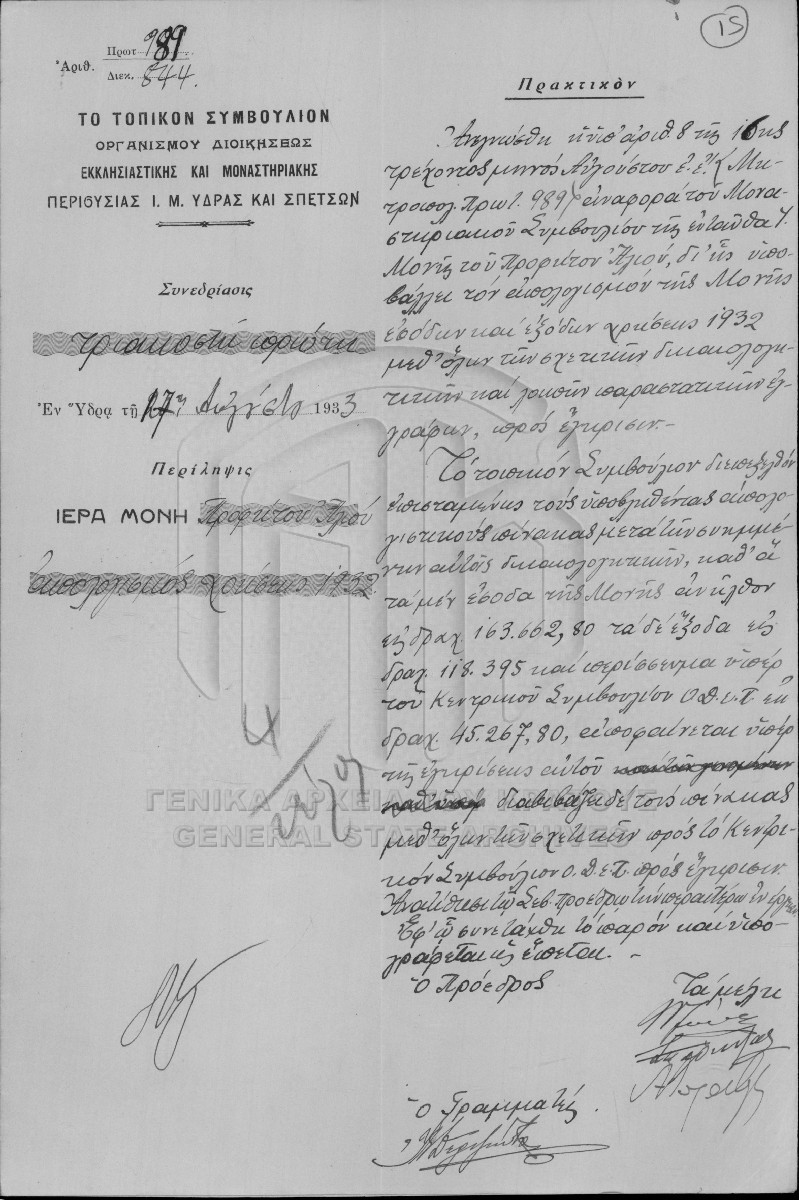 15
Ἀριθ. Πρωτ 989
Διεκ. 844.
ΤΟ ΤΟΠΙΚΟΝ ΣΥΜΒΟΥΛΙΟΝ
ΟΡΓΑΝΙΣΜΟΥ ΔΙΟΙΚΗΣΕΩΣ
ΕΚΚΛΗΣΙΑΣΤΙΚΗΣ ΚΑΙ ΜΟΝΑΣΤΗΡΙΑΚΗΣ
ΠΕΡΙΘΥΣΙΑΣ Ι. Μ. ΥΔΡΑΣ ΚΑΙ ΣΠΕΤΣΩΝ
Συνεδρίασις
τριακοστὴ πρώτη
Ἐν Ὕδρᾳ τῇ 17ῃ Αὐγούστου 1933
Περίληψις
ΙΕΡΑ ΜΟΝΗ Προφήτου Ἠλιού
ἀπολογισμός χρήσεως 1932.
Πρακτικὸν
Ἀνεγνώσθη ἡ ὑπ' ἀριθ 8 τῆς 16ης
τρέχοντος μηνός Αὐγούστου ἐ. ἔ. (Μη-
τροπολ. Πρωτ. 989) ἀναφορά τοῦ Μονα-
στηριακοῦ Συμβουλίου τῆς ἐνταῦθα Ἱ.
Μονῆς τοῦ Προφήτου Ἠλιού, δι' ἧς ὑπο-
βάλλει τόν ἀπολογισμόν τῆς Μονῆς
ἐσόδων καί ἐξόδων χρήσεως 1932
μεθ' ὅλων τῶν σχετικῶν δικαιολογη-
τικῶν καί λοιπῶν παραστατικῶν ἐγ-
γράφων, πρός ἔγκρισιν.-
Τό τοπικόν Συμβούλιον διεπεξελθόν
ἐπισταμένως τούς ὑποβληθέντας ἀπολο-
γιστικούς πίνακας μετά τῶν συνημμέ-
νων αὐτοῖς δικαιολογητικῶν, καθ' ἅ
τά μέν ἔσοδα τῆς Μονῆς ἀνῆλθον
εἰς δραχ. 163.662,80 τά δέ ἔξοδα εἰς
δραχ. 118.395 καί περίσσευμα ὑπέρ
τοῦ Κεντρικοῦ Συμβουλίου Ο.Δ.Ε.Π. ἐκ
δραχ. 45.267,80, ἀποφαίνεται ὑπέρ
τῆς ἐγκρίσεως αὐτοῦ
διαβιβάζει δέ τούς πίνακας
μεθ' ὅλων τῶν σχετικῶν πρός τό Κεντρι-
κόν Συμβούλιον Ο.Δ.Ε.Π. πρός ἔγκρισιν.
Ἀνατίθεσι τῷ Σεβ. προέδρῳ τήν περαιτέρω ἐνέργειαν
Ἐφ' ᾧ συνετάχθη τό παρόν καί ὑπο-
γράφεται ὡς ἕπεται. -
Ὁ Πρόεδρος
Τά μέλη
Ὁ Γραμματεύς
ΓΕΝΙΚΑ ΑΡΧΕΙΑ ΤΟΥ ΚΡΑΤΟΥΣ
GENERAL STATE ARCHIVES